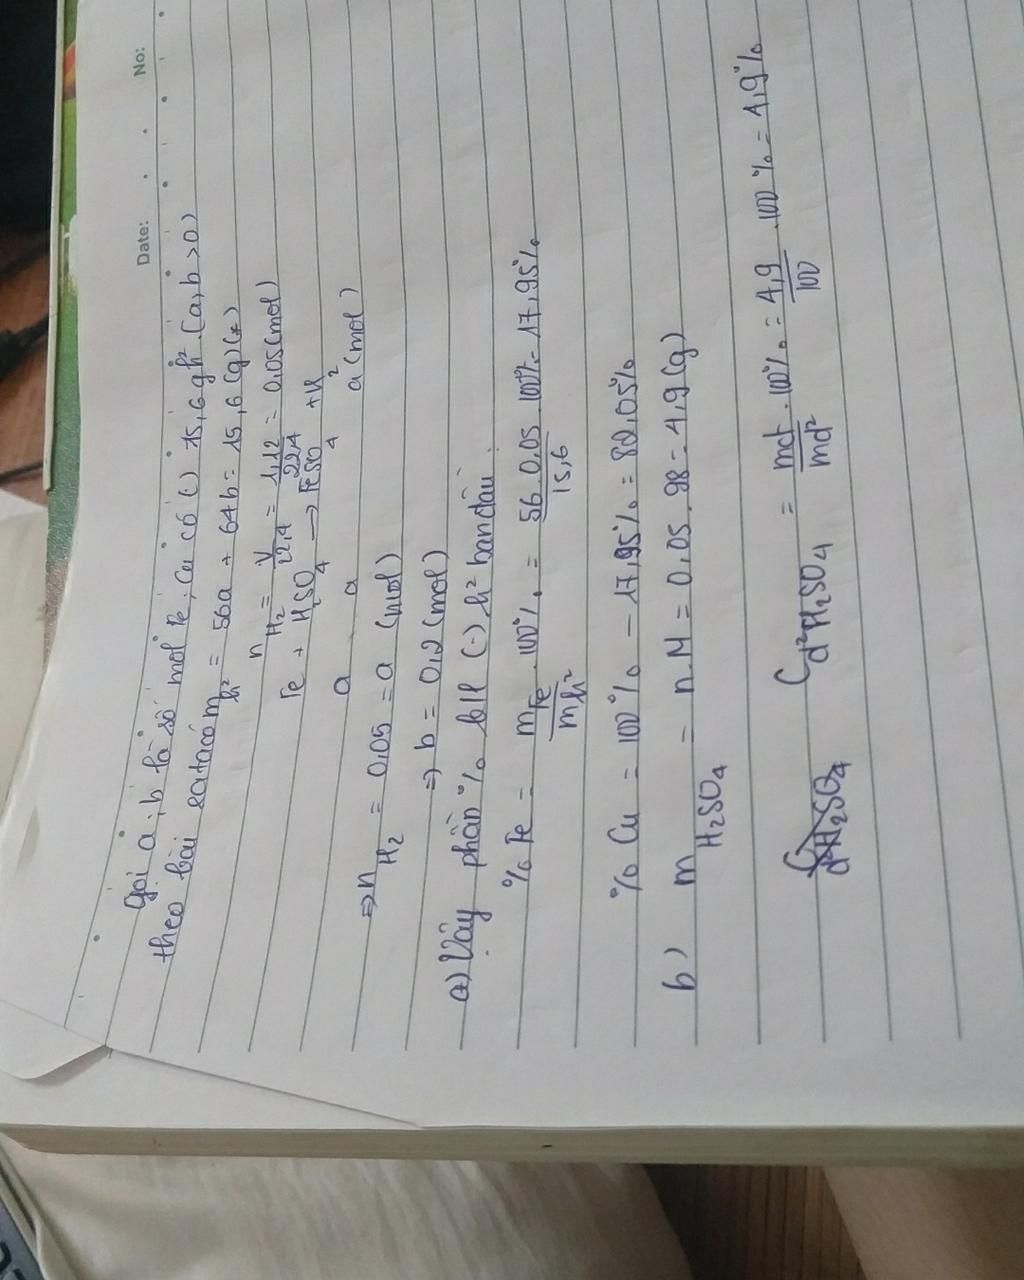 Date: No:
Gọi a, b là số mol Fe, Cu có (-) 15,6g h² (a, b > 0)
theo bài ra ta có m h² = 56a + 64b = 15,6 (g) (*)
n H2 = V/22,4 = 1,12/22,4 = 0,05 (mol)
Fe + H2SO4 → FeSO4 + H2
a a a (mol)
⇒ n H2 = 0,05 = a (mol)
⇒ b = 0,2 (mol)
a) Vậy phần % klg (-) h² ban đầu:
% Fe = mFe/mh² . 100% = 56.0,05/15,6 . 100% = 17,95%
% Cu = 100% - 17,95% = 82,05%
b) m H2SO4 = n.M = 0,05 . 98 = 4,9 (g)
C d² H2SO4 = mct/md² . 100% = 4,9/100 . 100% = 4,9%